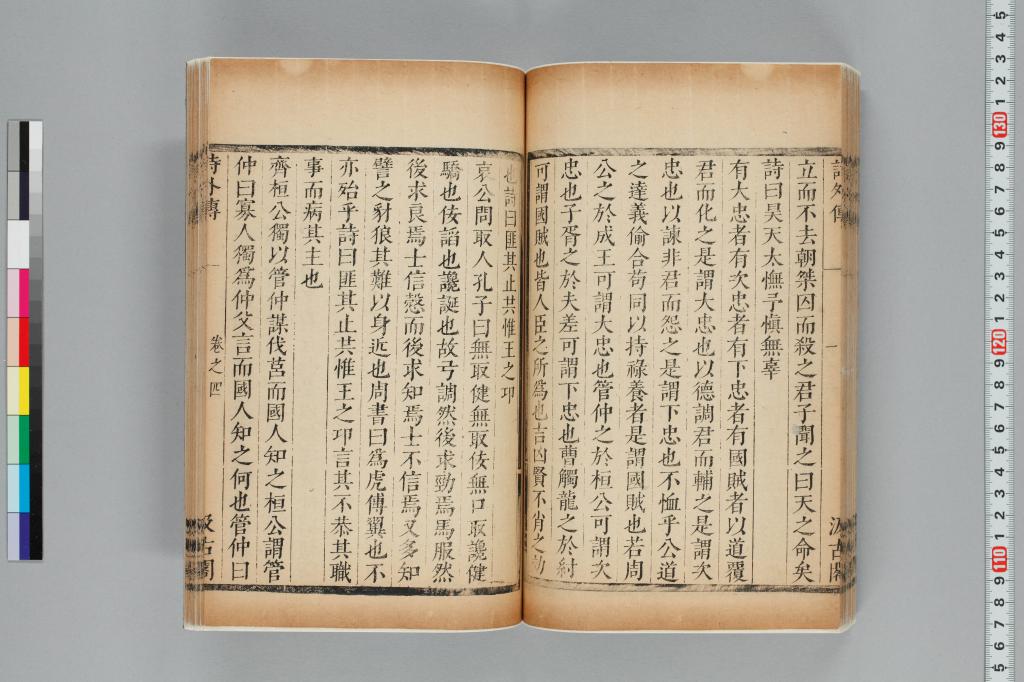 立而不去朝桀囚而殺之君子聞之曰天之命矣
詩曰昊天太憮予愼無辜
有大忠者有次忠者有下忠者有國賊者以道覆
君而化之是謂大忠也以德調君而輔之是謂次
忠也以諫非君而怨之是謂下忠也不恤乎公道
之達義偷合苟同以持祿養者是謂國賊也若周
公之於成王可謂大忠也管仲之於桓公可謂次
忠也子胥之於夫差可謂下忠也曹觸龍之於紂
可謂國賊也皆人臣之所爲也吉凶賢不肖之効
也詩曰匪其止共惟王之卭
哀公問取人孔子曰無取健無取佞無口取讒健
驕也佞謟也讒誕也故弓調然後求勁焉馬服然
後求良焉士信愨而後求知焉士不信焉又多知
譬之豺狼其難以身近也周書曰爲虎傅翼也不
亦殆乎詩曰匪其止共惟王之卭言其不恭其職
事而病其主也
齊桓公獨以管仲謀伐莒而國人知之桓公謂管
仲曰寡人獨爲仲父言而國人知之何也管仲曰
詩外傳
卷之四
汲古閣